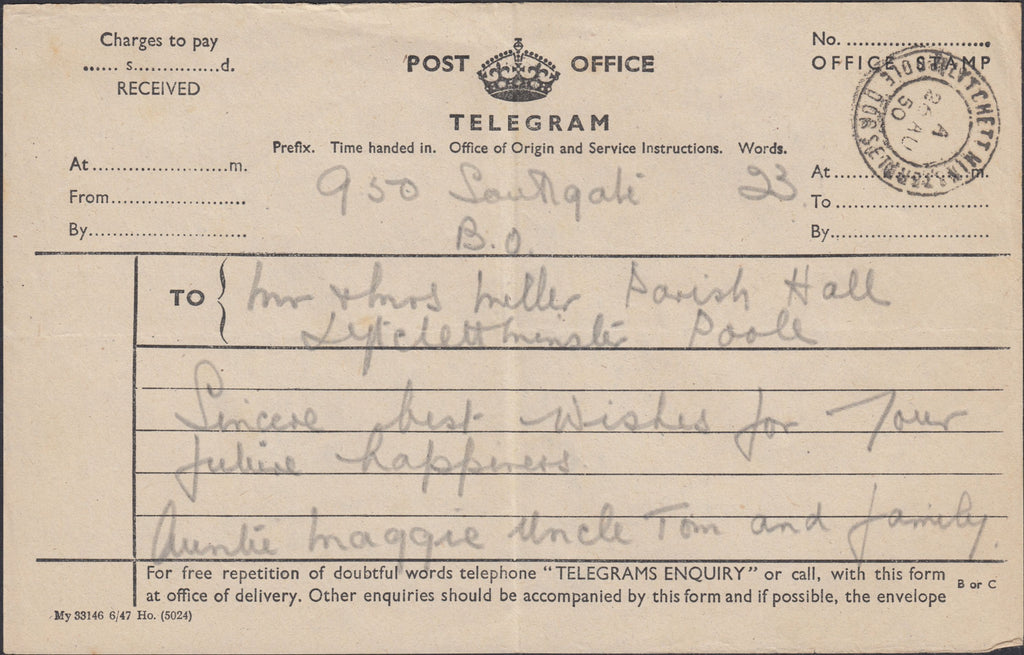 Charges to pay
...... s..............d.
RECEIVED
POST OFFICE
TELEGRAM
No. ........................
OFFICE STAMP
LYTCHETT MINSTER
POOLE DORSET
A
26 AU
50
Prefix. Time handed in. Office of Origin and Service Instructions. Words.
At.......................m.
From.......................
By..........................
950 Southgate 23
B.O.
At.......................m.
To..........................
By..........................
TO
Mr & Mrs Meller Parish Hall
Lytchett Minster Poole
Sincere best wishes for Your
future happiness
Auntie Maggie Uncle Tom and family.
For free repetition of doubtful words telephone "TELEGRAMS ENQUIRY" or call, with this form
at office of delivery. Other enquiries should be accompanied by this form and if possible, the envelope
B or C
My 33146 6/47 Ho. (5024)